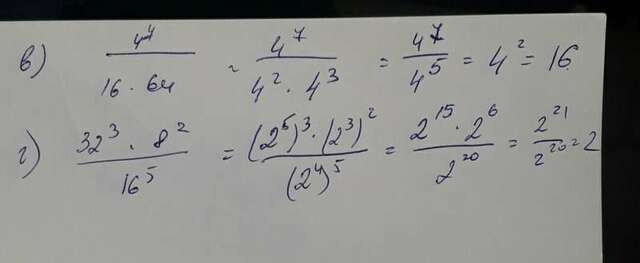 в) 4⁴/(16 · 64) = 4⁷/(4² · 4³) = 4⁷/4⁵ = 4² = 16
г) (32³ · 8²)/16⁵ = ((2⁵)³ · (2³)²)/(2⁴)⁵ = (2¹⁵ · 2⁶)/2²⁰ = 2²¹/2²⁰ = 2